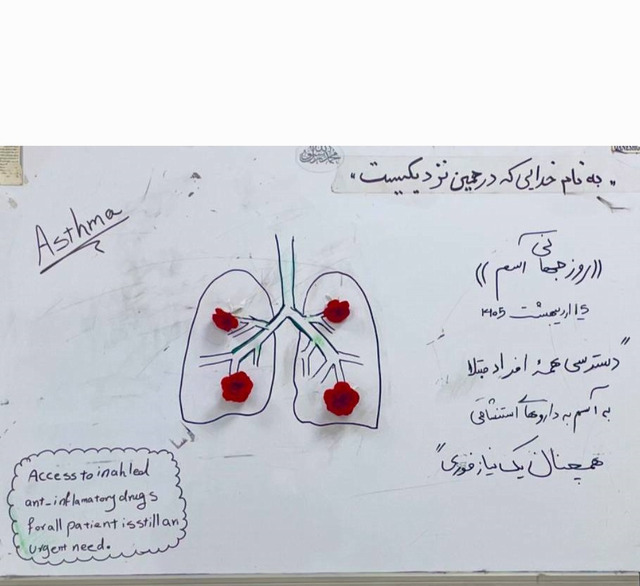 "به نام خدایی که در همین نزدیکیست"
Asthma
((روز جهانی آسم))
15 اردیبهشت ۴۰۵
"دسترسی همهٔ افراد مبتلا
به آسم به داروهای استنشاقی
همچنان یک نیاز فوری"
Access to inahled
ant-inflamatory drugs
for all patient is still an
urgent need.